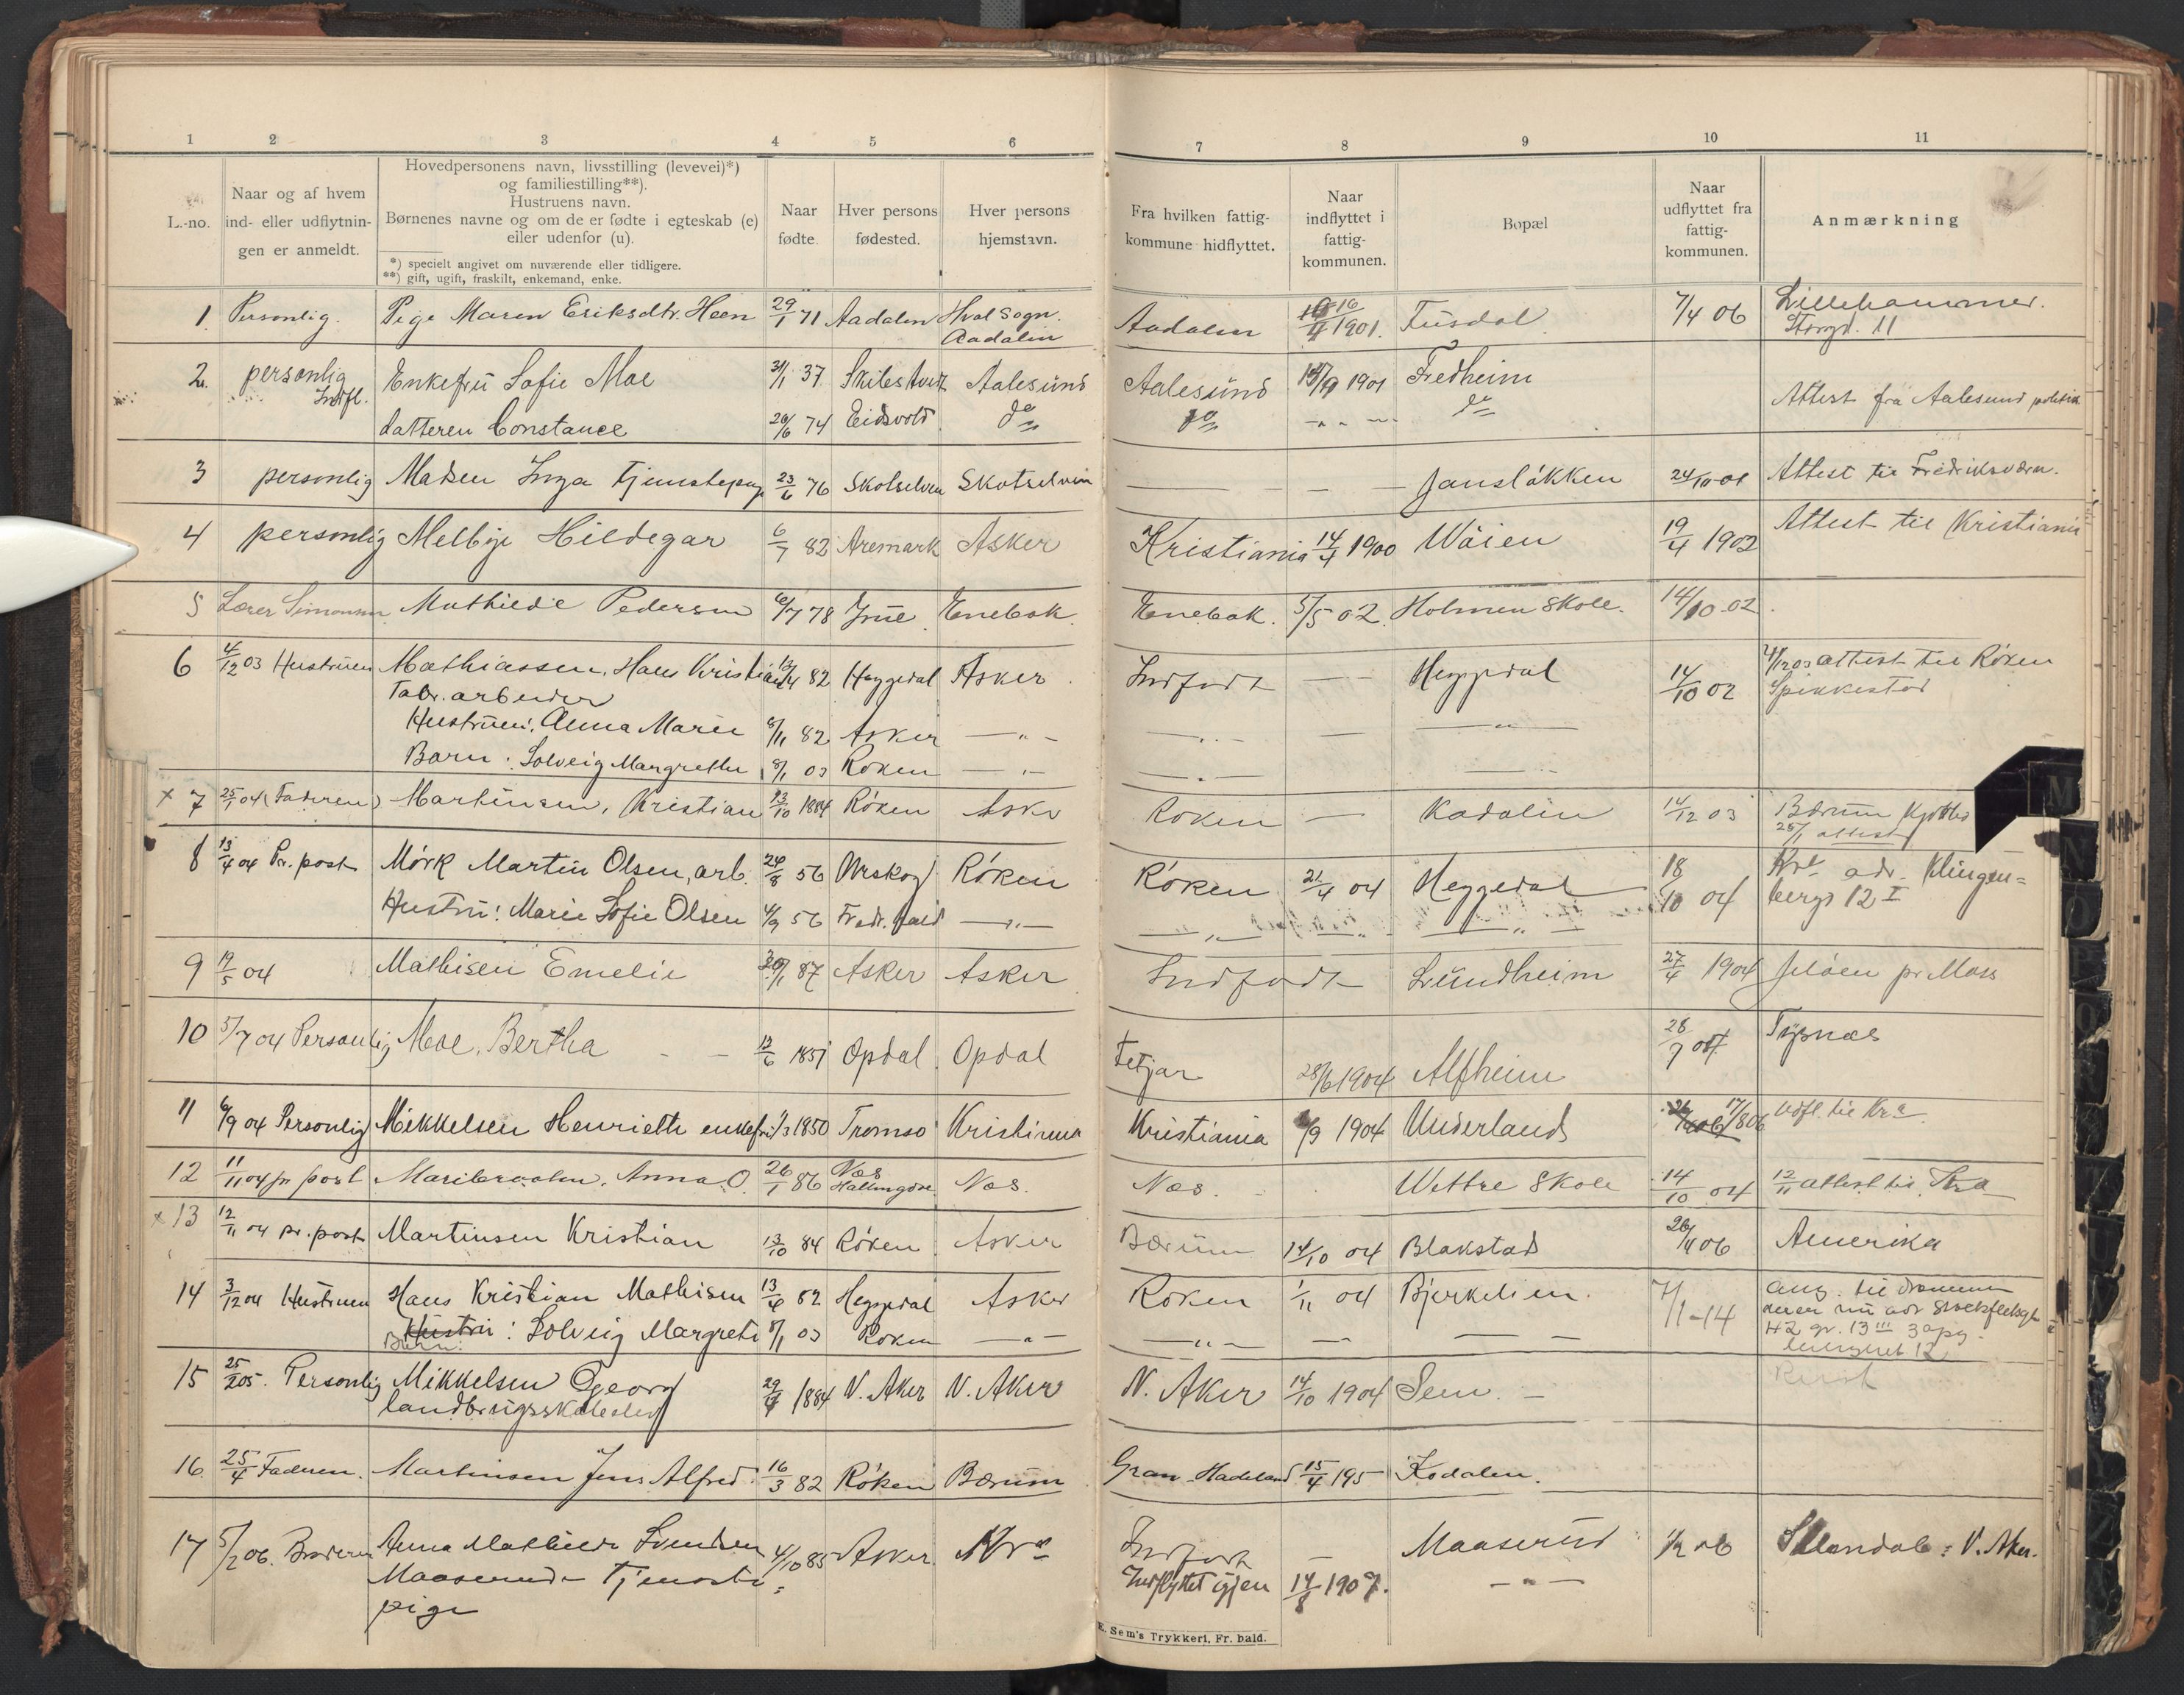 1 2 3 4 5 6 7 8 9 10 11
L.-no.
Naar og af hvem
ind- eller udflytnin-
gen er anmeldt.
Hovedpersonens navn, livsstilling (levevei)*)
og familiestilling**).
Hustruens navn.
Børnenes navne og om de er fødte i egteskab (e)
eller udenfor (u).
*) specielt angivet om nuværende eller tidligere.
**) gift, ugift, fraskilt, enkemand, enke.
Naar
fødte.
Hver persons
fødested.
Hver persons
hjemstavn.
Fra hvilken fattig-
kommune hidflyttet.
Naar
indflyttet i
fattig-
kommunen.
Bopæl
Naar
udflyttet fra
fattig-
kommunen.
Anmærkning
1. Personlig. Pige Maren Eriksdtr. Heen 29/1 71 Aadalen Hval Sogn. Aadalen Aadalen 16/4 1901. Fusdal 7/4 06 Lillehammer.
Storgd. 11
2. personlig Indfl. Enkefru Sofie Moe 31/1 37 Aalesund Aalesund 1901 Fredheim Attest fra Aalesund
datteren Constance 20/6 74 Eidsvold do do do
3 personlig Madsen Inga tjenstepige 23/6 76 Skotselven Skotselven — — Jansløkken 24/10-01 Attest til Fredriksværn.
4 personlig Melbye Hildegar 6/7 82 Aremark Asker Kristiania 14/4 1900 Wøien 19/4 1902 Attest til Kristiania
5 Lærer Simonsen Mathilde Pedersen 6/7 78 Enebak. Enebak. 5/5 02. Holmen Skole. 14/10-02.
6 4/12 03 Hustruen Mathiassen, Hans Kristian 13/4 82 Heggedal Asker Indfødt — Heggedal 14/10 02 4/12 03 attest til Røken
Fabr. arbeider Spikkestad
Hustruen: Anna Marie 8/11 82 Asker —"— —"— — —"—
Barn: Solveig Margrethe 8/1 03 Røken —"— —"—
x 7 25/1 04 (Faderen) Martinsen, Kristian 13/10 1884 Røken Asker Røken — Kodalen 14/12 03 Bærum
25/1 attest
8 13/4 04 Pr. post Mørk Martin Olsen, arb. 24/8 56 Urskog Røken Røken 21/4 04 Heggedal 18/10 04 Kra adr. Klingen=
bergs 12 I
Hustru: Marie Sofie Olsen 4/9 56 Fredr.hald —"— —"— —"— —"—
9 19/5 04 Mathisen Emelie 87 Asker Asker Indfødt Lundheim 27/4 1904 Jeløen pr Moss
10 5/7 04 Personlig Moe, Bertha — — 12/6 1851 Opdal Opdal 28/6 1904 Alfheim 28/9
11 6/9 04 Personlig Mikkelsen Henriette enkefru 1/3 1850 Tromsø Kristiania Kristiania 6/9 1904 Underland 17/8 06 Udfl. til Kra
12 11/11 04 pr post Anna O. 26/1 86 Næs Hallingdal Næs. Næs. Wettre Skole 14/10 04 12/11 attest til Kra
x 13 12/11 04 pr. post Martinsen Kristian 13/10 84 Røken Asker Bærum 14/10 04 Blakstad 26/4 06 Amerika
14 3/12 04 Hustruen Hans Kristian Mathisen 13/4 82 Heggedal Asker Røken 1/11 04 Bjerkelien. 7/1-14 ang. til Drammen
Hustru: Barn: Solveig Margrete 8/1 03 Røken —"— —"— — — —
42 gr. 13 III 3 opg.
15 25/2 05. Personlig Mikkelsen Georg 1884 V. Aker V. Aker V. Aker 14/10 1904 Sem. —
landbrugsskoleelev
16. 25/4 Faderen. Martinsen Jens Alfred 16/3 82 Røken Bærum Gran Hadeland 15/4 195 Kodalen.
17 5/2 06. Broderen Anna Mathilde Svendsen 4/10 85 Asker. Kra Indfødt — Maaserud 1/2 06 V. Aker.
Maaserud Tjeneste= Indflyttet igjen 14/8 1907. —"—
pige
E. Sem's Trykkeri, Fr. hald.
M
N
O